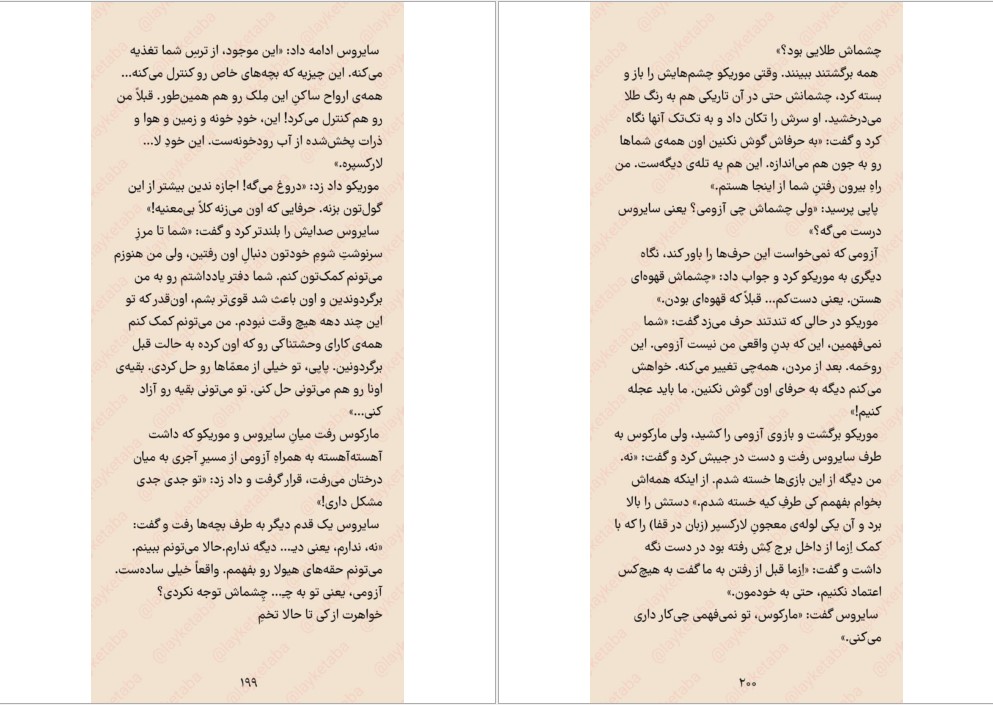 سایروس ادامه داد: «این موجود، از ترسِ شما تغذیه
می‌کنه. این چیزیه که بچه‌های خاص رو کنترل می‌کنه...
همه‌ی ارواح ساکنِ این مِلک رو هم همین‌طور. قبلاً من
رو هم کنترل می‌کرد! این، خودِ خونه و زمین و هوا و
ذرات پخش‌شده از آب رودخونه‌ست. این خودِ لا...
لارکسپره.»
موریکو داد زد: «دروغ می‌گه! اجازه ندین بیشتر از این
گول‌تون بزنه. حرفایی که اون می‌زنه کلاً بی‌معنیه!»
سایروس صدایش را بلندتر کرد و گفت: «شما تا مرزِ
سرنوشتِ شومِ خودتون دنبالِ اون رفتین، ولی من هنوزم
می‌تونم کمک‌تون کنم. شما دفتر یادداشتم رو به من
برگردوندین و اون باعث شد قوی‌تر بشم، اون‌قدر که تو
این چند دهه هیچ وقت نبودم. من می‌تونم کمک کنم
همه‌ی کارای وحشتناکی رو که اون کرده به حالت قبل
برگردونین. پاپی، تو خیلی از معمّاها رو حل کردی. بقیه‌ی
اونا رو هم می‌تونی حل کنی. تو می‌تونی بقیه رو آزاد
کنی...»
مارکوس رفت میانِ سایروس و موریکو که داشت
آهسته‌آهسته به همراهِ آزومی از مسیرِ آجری به میان
درختان می‌رفت، قرار گرفت و داد زد: «تو جدی جدی
مشکل داری!»
سایروس یک قدم دیگر به طرف بچه‌ها رفت و گفت:
«نه، ندارم، یعنی دیـ... دیگه ندارم.حالا می‌تونم ببینم.
می‌تونم حقه‌های هیولا رو بفهمم. واقعاً خیلی ساده‌ست.
آزومی، یعنی تو به چـ... چِشماش توجه نکردی؟
خواهرت از کی تا حالا تخمِ
۱۹۹
چشماش طلایی بود؟»
همه برگشتند ببینند. وقتی موریکو چشم‌هایش را باز و
بسته کرد، چشمانش حتی در آن تاریکی هم به رنگ طلا
می‌درخشید. او سرش را تکان داد و به تک‌تک آنها نگاه
کرد و گفت: «به حرفاش گوش نکنین اون همه‌ی شماها
رو به جون هم می‌اندازه. این هم یه تله‌ی دیگه‌ست. من
راهِ بیرون رفتنِ شما از اینجا هستم.»
پاپی پرسید: «ولی چشماش چی آزومی؟ یعنی سایروس
درست می‌گه؟»
آزومی که نمی‌خواست این حرف‌ها را باور کند، نگاه
دیگری به موریکو کرد و جواب داد: «چشماش قهوه‌ای
هستن. یعنی دست‌کم... قبلاً که قهوه‌ای بودن.»
موریکو در حالی که تندتند حرف می‌زد گفت: «شما
نمی‌فهمین، این که بدنِ واقعی من نیست آزومی. این
روحمه. بعد از مردن، همه‌چی تغییر می‌کنه. خواهش
می‌کنم دیگه به حرفای اون گوش نکنین. ما باید عجله
کنیم!»
موریکو برگشت و بازوی آزومی را کشید، ولی مارکوس به
طرف سایروس رفت و دست در جیبش کرد و گفت: «نه.
من دیگه از این بازی‌ها خسته شدم. از اینکه همه‌اش
بخوام بفهمم کی طرفِ کیه خسته شدم.» دستش را بالا
برد و آن یکی لوله‌ی معجونِ لارکسپر (زبان در قفا) را که با
کمک اِزما از داخل برج کِش رفته بود در دست نگه
داشت و گفت: «اِزما قبل از رفتن به ما گفت به هیچ‌کس
اعتماد نکنیم، حتی به خودمون.»
سایروس گفت: «مارکوس، تو نمی‌فهمی چی‌کار داری
می‌کنی.»
۲۰۰
@layketaba